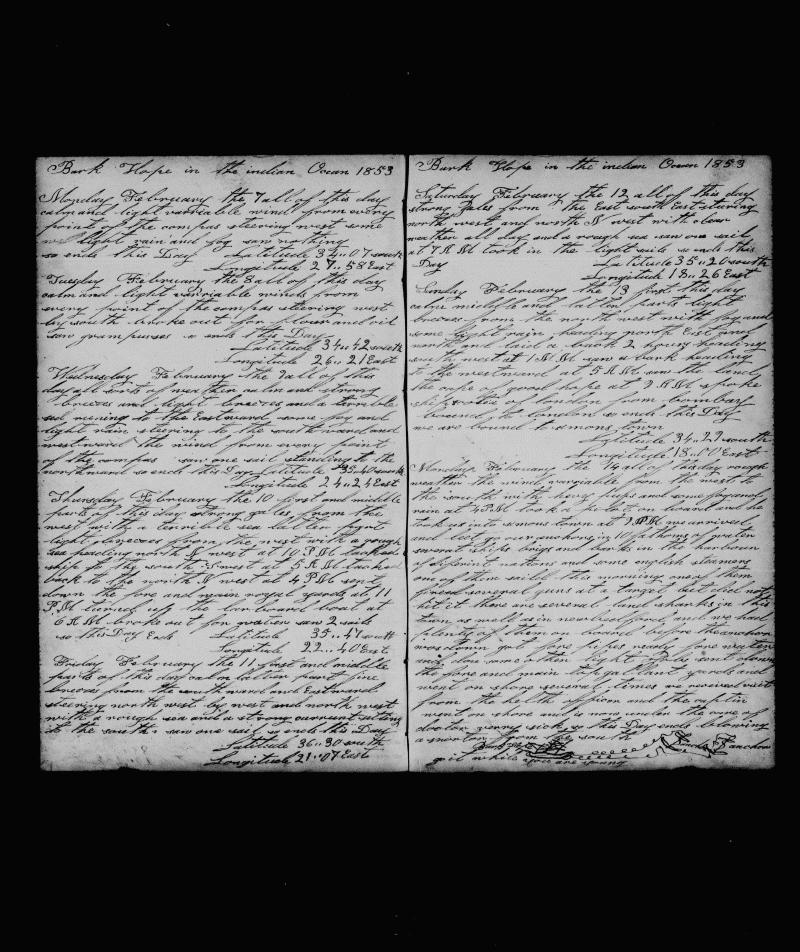 Bark Hope in the indian Ocean 1853
Monday February the 7 all of this day
calm and light varriable wind from every
point of the compas steering west some
light rain and fog saw nothing
so ends this Day Latitude 34..07 south
Longitude 27..58 East
Tuesday February the 8 all of this day
calm and light varriable winds from
every point of the compas steering west
by south broke out for flour and oil
saw grampusses so ends this Day
Latitude 34..42 south
Longitude 26..21 East
Wednesday February the 9 all of this
day all sorts of weather calm and strong
breezes and light breezes and a terrible
sea runing to the Eastward some fog and
light rain steering to the southward and
westward the wind from every point
of the compas saw one sail standing to the
northward so ends this Day Latitude 35..40 south
Longitude 24..24 East
Thursday February the 10 first and middle
parts of this day strong gales from the
west with a terrible sea latter part
light breezes from the west with a rough
sea heading north N west at 10 P.M tacked
ship to the south S west at 5 A M tacked
back to the north N west at 4 P M sent
down the fore and main royal yards at 11
P.M turned up the larboard boat at
6 A M broke out for water saw 2 sails
so this Day Ends Latitude 35..47 south
Longitude 22..40 East
Friday February the 11 first and middle
parts of this day calm latter part fine
breezes from the southward and Eastward
steering north west by west and north west
with a rough sea and a strong current setting
to the south saw one sail so ends this Day
Latitude 36..30 south
Longitude 21..07 East
Bark Hope in the indian Ocean 1853
Saturday February the 12 all of this day
strong gales from the East south East steering
north west and north N west with clear
weather all day and a rough sea saw one sail
at 7 A M took in the light sails so ends this
Day Latitude 35..20 south
Longitude 18..26 East
Sunday February the 13 first this day
calm middle and latter parts light
breezes from the north west with fog and
some light rain heading north East and
north and laid a back 2 hours heading
south west at 1 saw a bark heading
to the westward at 5 A M saw the land
the cape of good hope at 9 A M spoke
ship of london from bombay
bound to london so ends this Day
we are bound to simons town
Latitude 34..27 south
Longitude 18..00 East
Monday February the 14 all of this day rough
weather the wind varriable from the west to
the south with heavy puffs and some fog and
rain at 4 P M took a pilot on board and he
took us into simons town at 9 P M we arrived
and let go our anchors in 10 fathoms of water
several ships brigs and barks in the harbour
of diferent nations and some english steamers
one of them saild this morning one of them
fired several guns at a target but did not
hit it there are several land sharks in this
town as well as in newbedford and we had
plenty of them on board before the anchor
was down got fore pipes ready fore water
and done some other light jobs sent down
the fore and main top gallant yards and
went on shore several times we received visit
from the helth officer and the captin
went on shore and is now under the care of
doctor verry sick so this Day ends blowing
a snorter from the south
while you are young